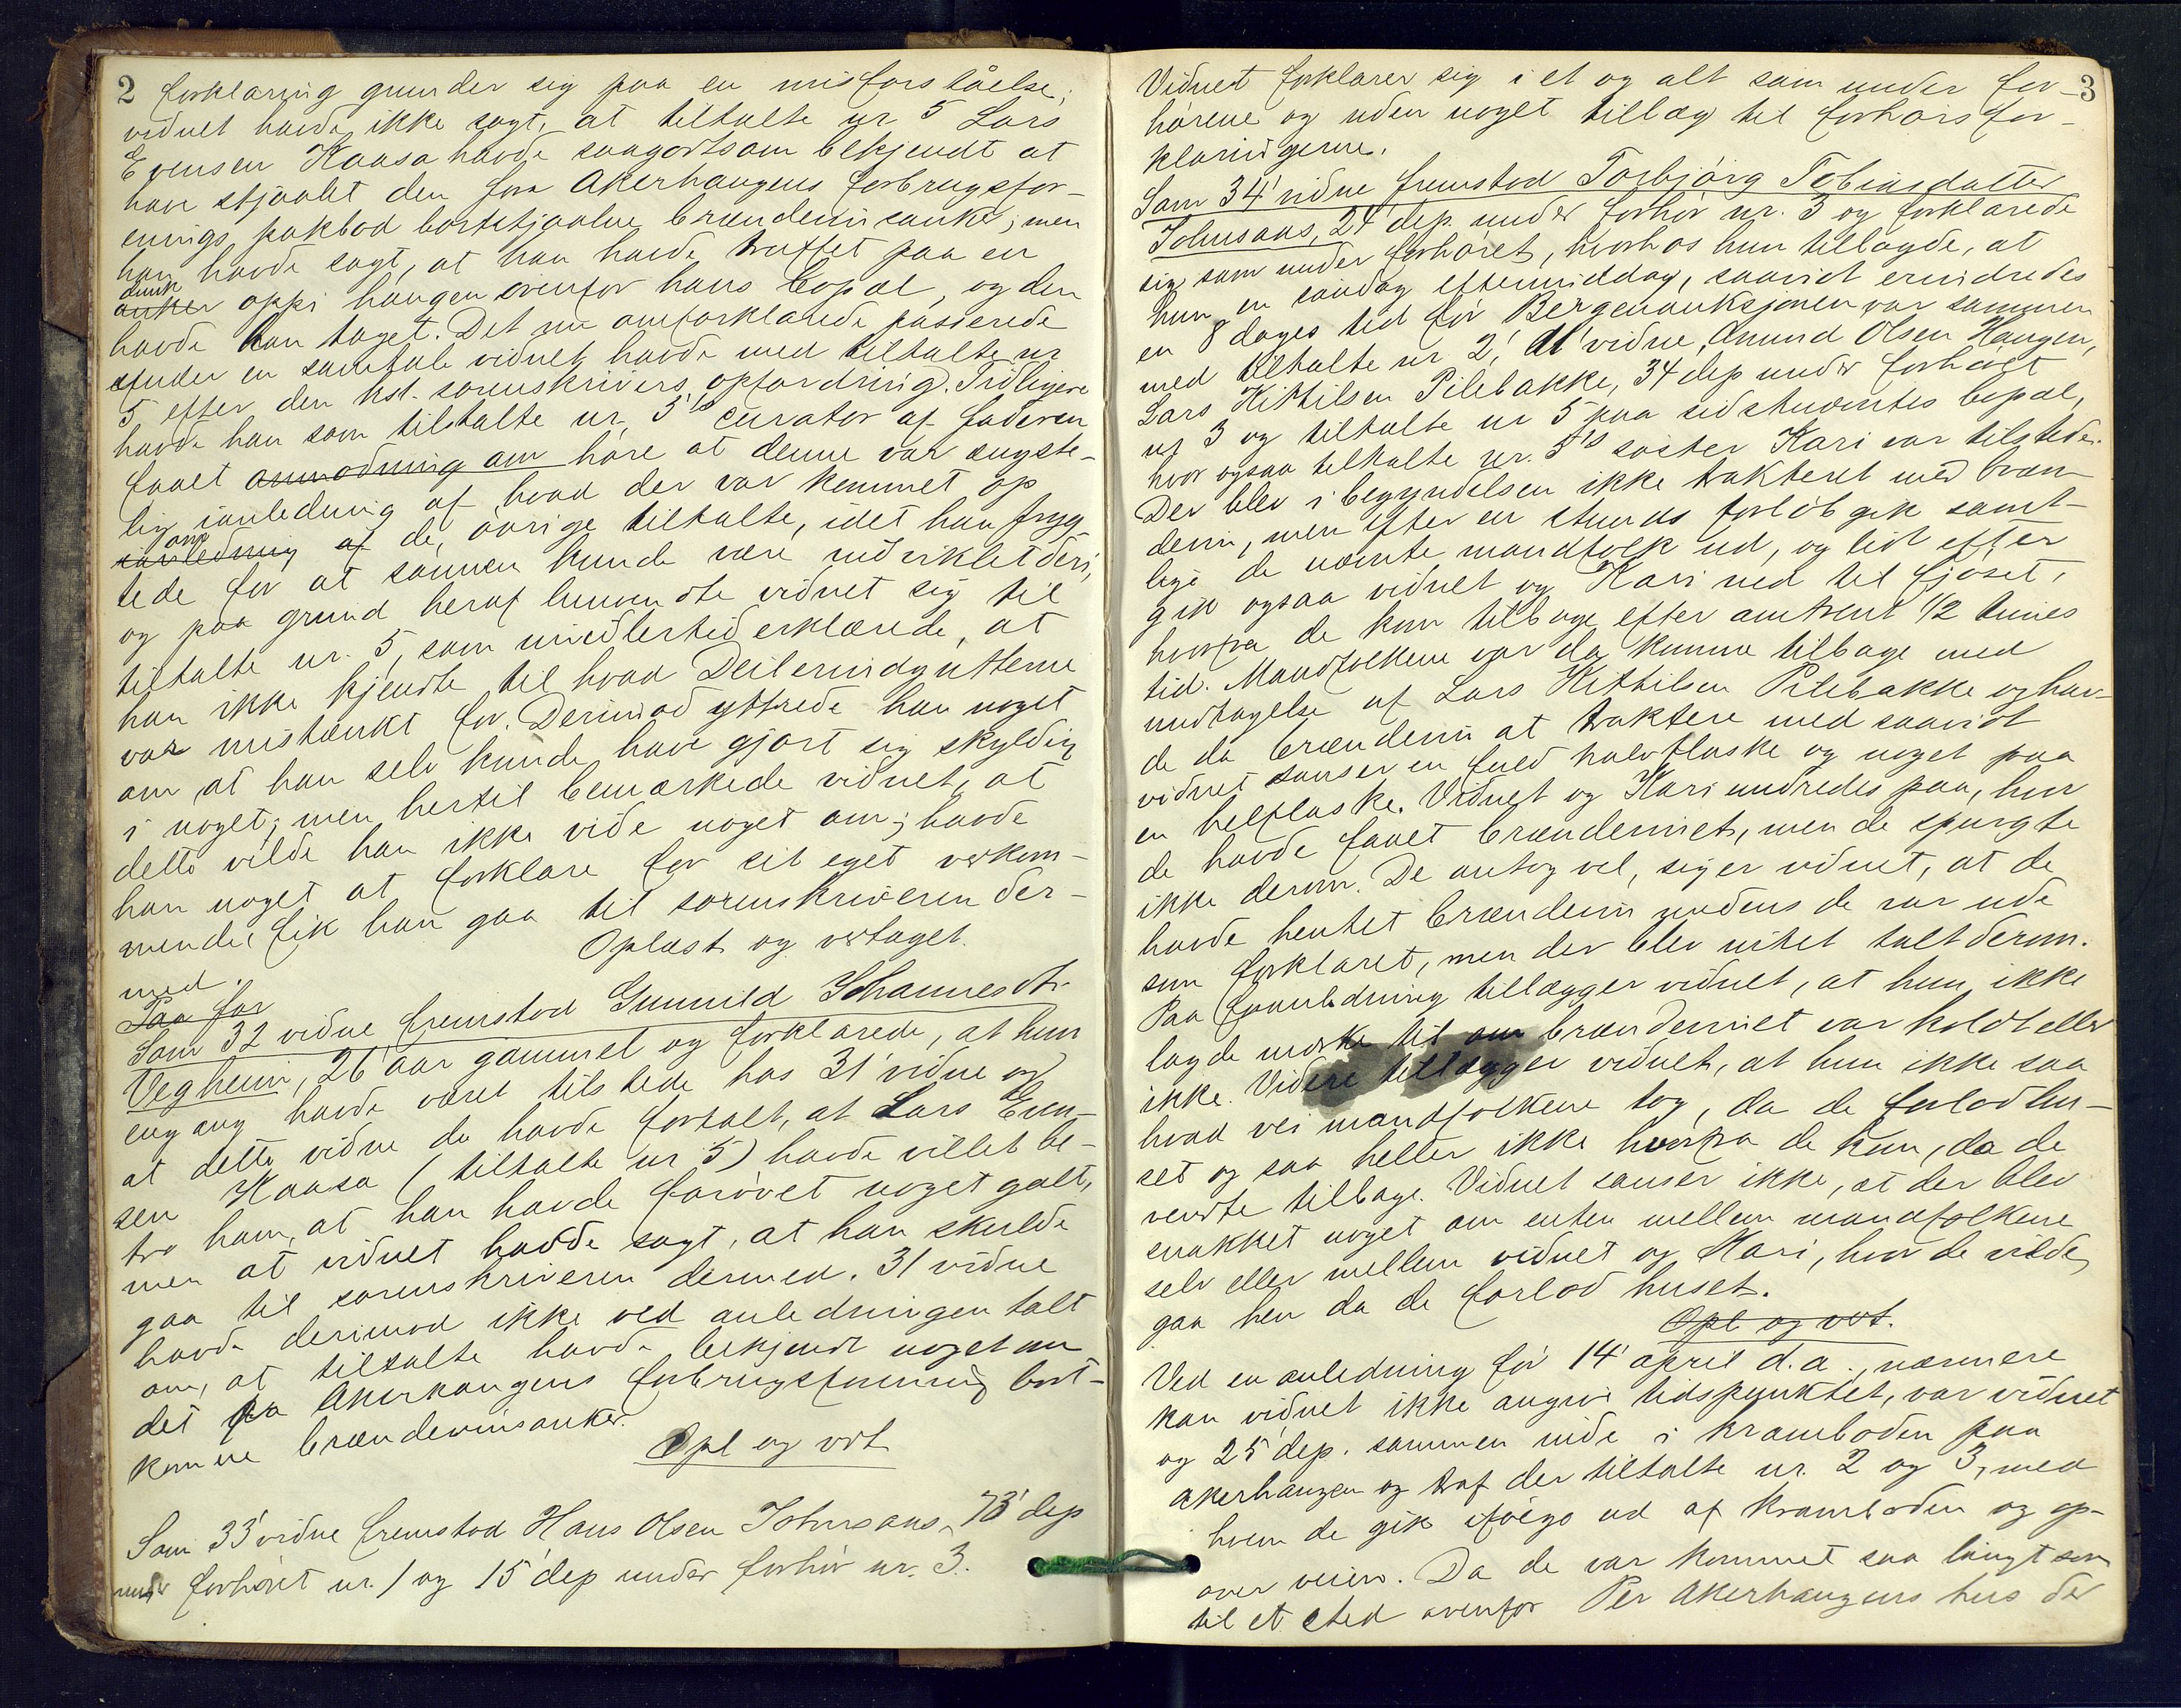 2
forklaring grunder sig paa en misforståelse;
vidnet havde ikke sagt, at tiltalte nr 5 Lars
Evensen Kaasa havde saagodtsom bekjendt at
have stjaalet den fra Akerhaugens forbrugsfor-
enings pakbod bortstjaalne brændevinsanker; men
han havde sagt, at han havde truffet paa en
dunk
anker oppi haugen ovenfor hans bopæl, og den
havde han taget. Det nu omforklarede passerede
under en samtale vidnet havde med tiltalte nr
5 efter den kst. sorenskrivers opfordring. Tidligere
havde han som tiltalte nr. 5's curator af faderen
faaet anmodning om høre at denne var ængste-
lig i anledning af hvad der var kommet op
om
anledning af de øvrige tiltalte, idet han fryg-
tede for at sønnen kunde være indviklet deri,
og paa grund heraf henvendte vidnet sig til
tiltalte nr. 5, som imidlertid erklærede, at
han ikke kjendte til hvad Deilerindgutterne
var mistænkt for. Derimod yttrede han noget
om, at han selv kunde have gjort sig skyldig
i noget; men hertil bemærkede vidnet, at
dette vilde han ikke vide noget om; havde
han noget at forklare for sit eget vedkom-
mende, fik han gaa til sorenskriveren der-
med. Oplæst og vedtaget.
Paa for
Som 32 vidne fremstod Gunnild Johannesdtr
Vegheim, 26 aar gammel og forklarede, at hun
engang havde været tilstede hos 31' vidne og
at dette vidne da havde fortalt, at Lars Even-
sen Kaasa (tiltalte nr 5) havde villet be-
tro ham, at han havde forøvet noget galt,
men at vidnet havde sagt, at han skulde
gaa til sorenskriveren dermed. 31 vidne
havde derimod ikke ved anledningen talt
om, at tiltalte havde bekjendt noget om
det fra Akerhaugens forbrugsforening bort-
komne brændevinsanker.
Opl og vdt
Som 33' vidne fremstod Hans Olsen Johnsaas, 73' dep
under forhøret nr. 1 og 15' dep under forhør nr. 3.
3
Vidnet forklarer sig i et og alt som under for-
hørene og uden noget tillæg til forhørsfor-
klaringerne.
Som 34' vidne fremstod Torbjørg Tobiasdatter
Johnsaas, 24' dep. under forhør nr. 3 og forklarede
sig som under forhøret, hvorhos hun tillagde, at
hun en søndag eftermiddag, saavidt erindredes
en 8 dages tid før Bergenauksjonen var sammen
med tiltalte nr 2, 21' vidne, Amund Olsen Haugen,
Lars Kittilsen Pilebakke, 34 dep under forhøret
nr 3 og tiltalte nr 5 paa sidstnævntes bopæl,
hvor ogsaa tiltalte nr. 5's søster Kari var tilstede.
Der blev i begyndelsen ikke trakteret med bræn-
devin, men efter en stunds forløb gik samt-
lige de nævnte mandfolk ud, og lidt efter
gik ogsaa vidnet og Kari ned til fjøset,
hvorfra de kom tilbage efter omtrent 1/2 times
tid. Mandfolkene var da komne tilbage med
undtagelse af Lars Kittilsen Pilebakke og hav-
de da brændevin at traktere med saavidt
vidnet sanser en fuld halvflaske og noget paa
en helflaske. Vidnet og Kari undredes paa, hvor
de havde faaet brændevinet, men de spurgte
ikke derom. De antog vel, siger vidnet, at de
havde hentet brændevin medens de var ude
som forklaret, men der blev intet talt derom.
Paa foranledning tillægger vidnet, at hun ikke
lagde mærke til om brændevinet var koldt eller
ikke. Videre tillægger vidnet, at hun ikke saa
hvad vei mandfolkene tog, da de forlod hu-
set og saa heller ikke hvorfra de kom, da de
vendte tilbage. Vidnet sanser ikke, at der blev
snakket noget om enten mellem mandfolkene
selv eller mellem vidnet og Kari, hvor de vilde
gaa hen da de forlod huset.
Opl og vdt.
Ved en anledning før 14' april d.a., nærmere
kan vidnet ikke angive tidspunktet, var vidnet
og 25' dep. sammen inde i kramboden paa
Akerhaugen og traf der tiltalte nr. 2 og 3, med
hvem de gik ifølge ud af kramboden og op-
over veien. Da de var kommet saa langt som
til et sted ovenfor Per Akerhaugens hus der